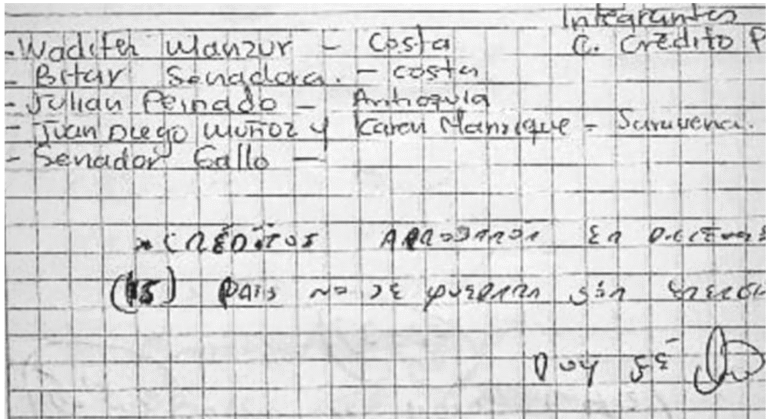 Integrantes
C. Crédito P
- Wadith Manzur - Costa
- Bitar Senadora. - costa
- Julian Peinado - Antioquia
- Juan Diego Muñoz y Karen Manrique - Saravena.
- Senador Gallo -
* CRÉDITOS APROBADOS EN DICIEMB
(15) PAIS NO SE QUEDARA SIN ENERGI
DOY FÉ